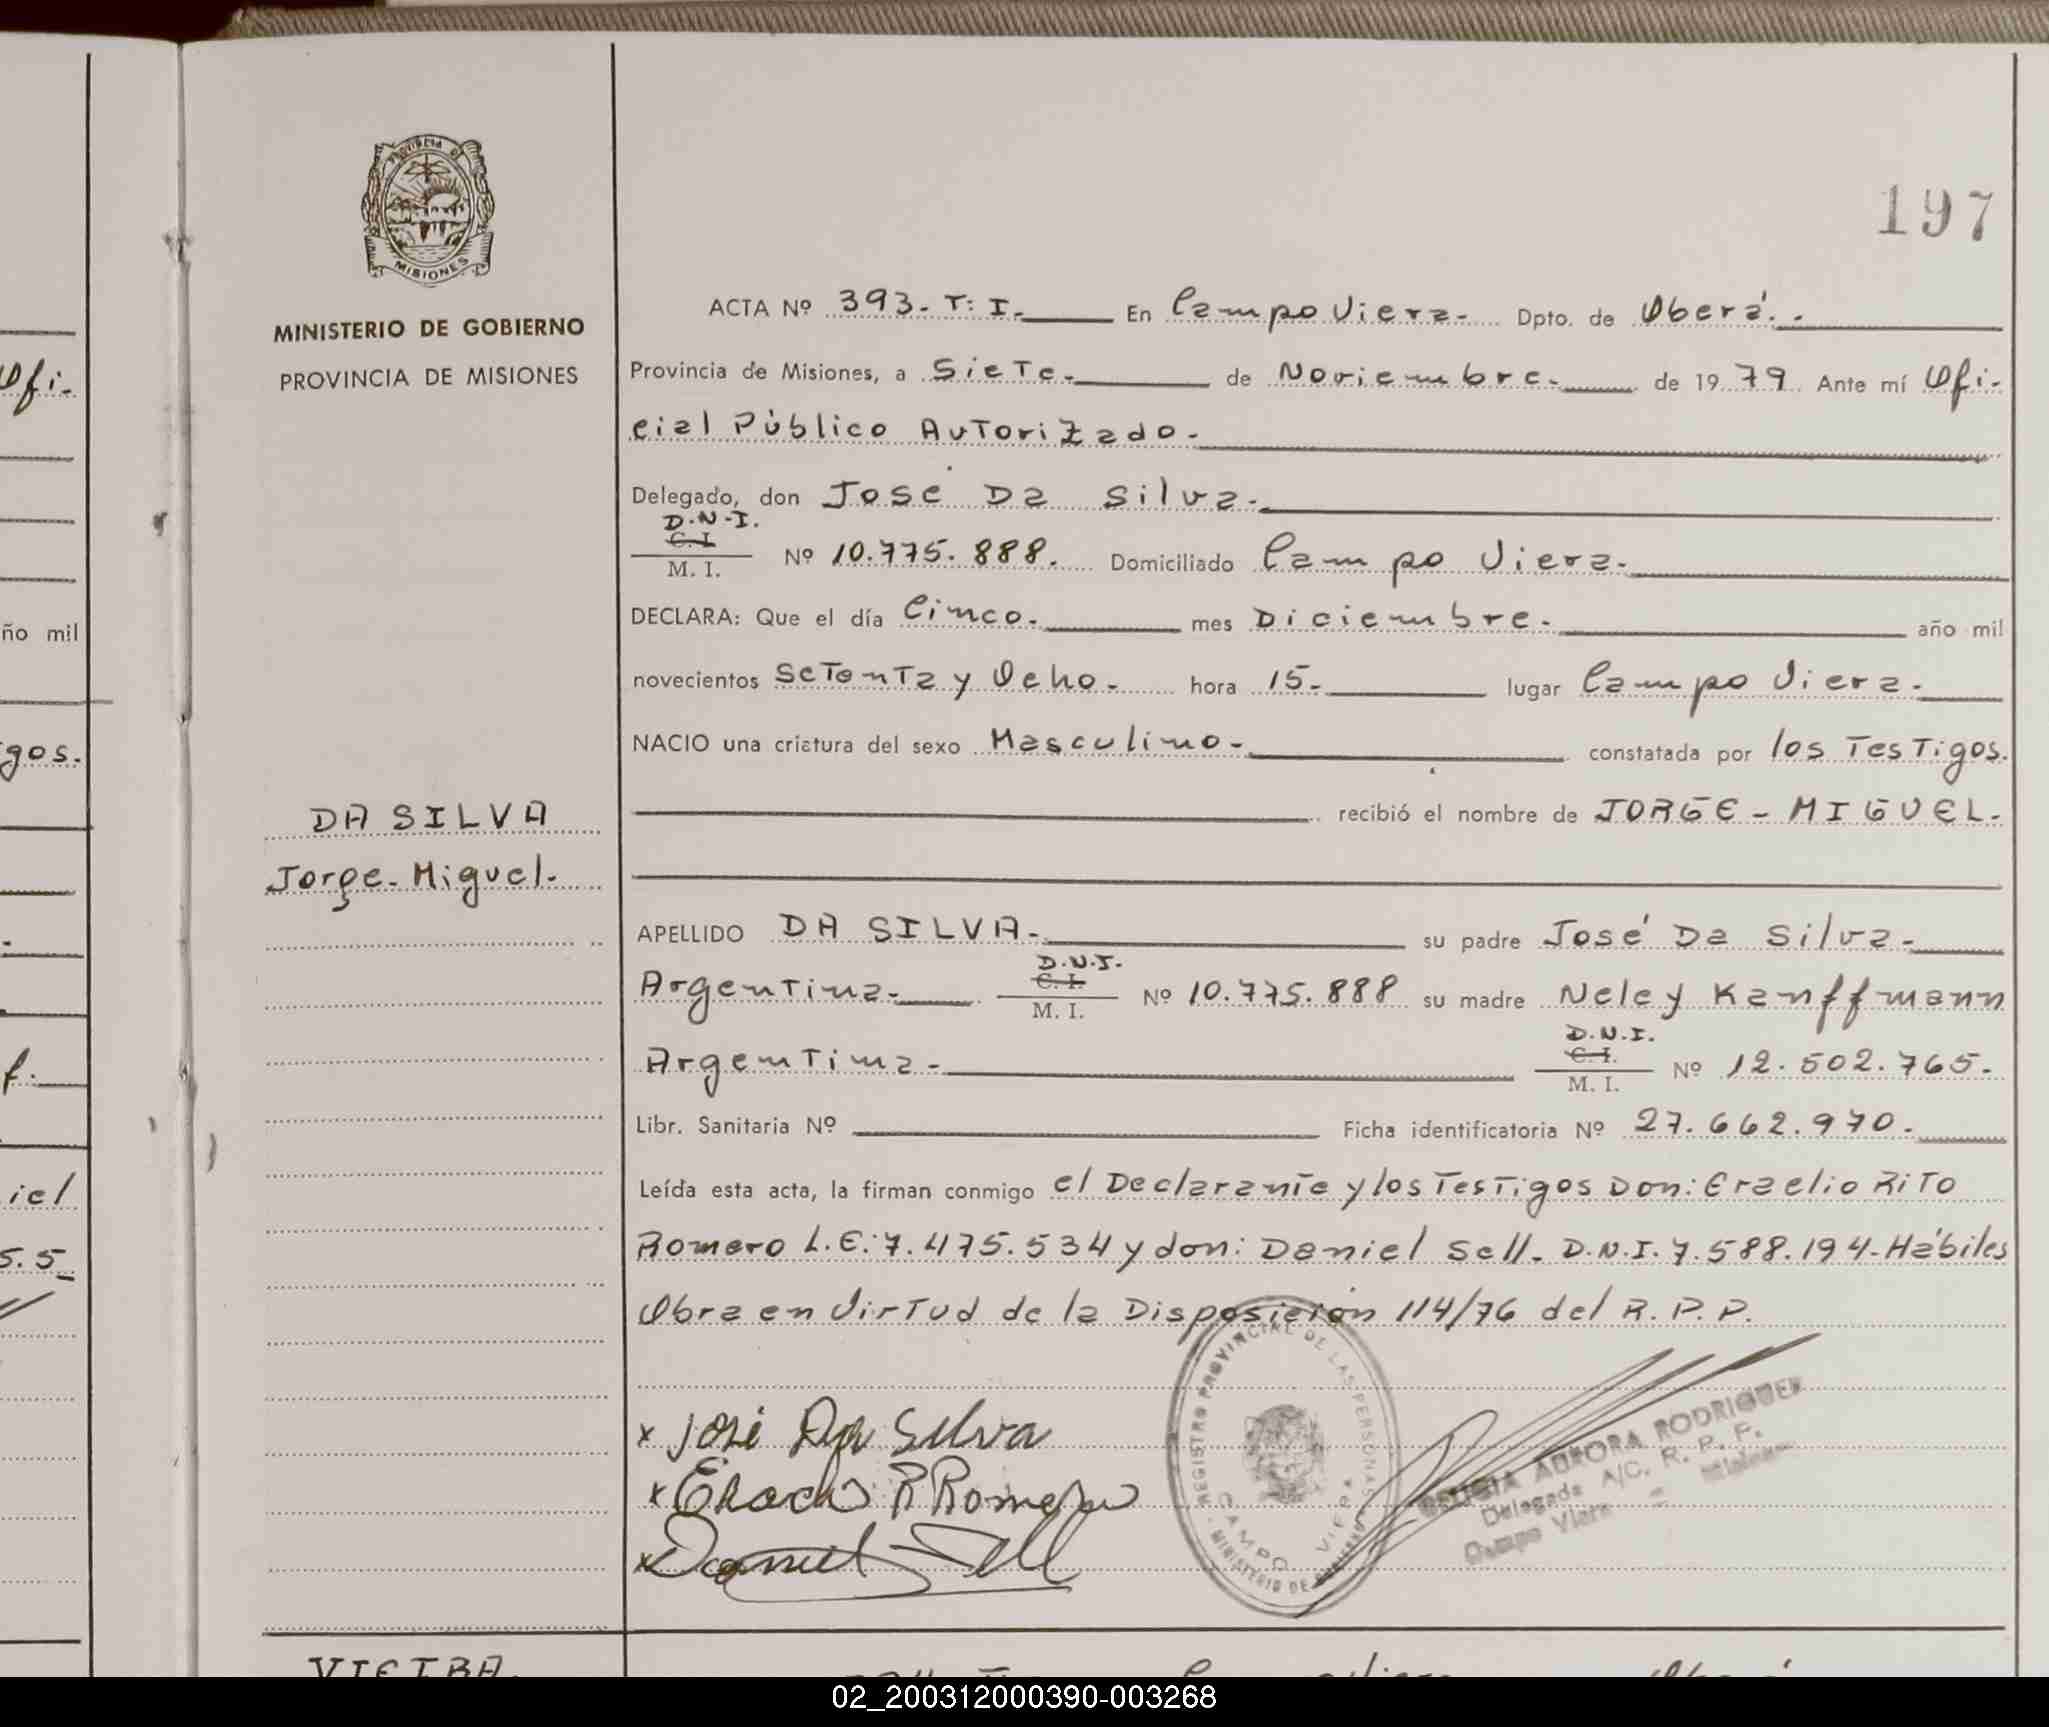 PROVINCIA DE
MISIONES
MINISTERIO DE GOBIERNO
PROVINCIA DE MISIONES
DA SILVA
Jorge-Miguel.
197
ACTA Nº 393- T: I. En Campo Viera- Dpto. de Oberá.-
Provincia de Misiones, a Siete- de Noviembre- de 1979 Ante mí Ofi-
cial Público Autorizado-
Delegado, don José Da Silva-
D.N.I.
C. I.
M. I. Nº 10.775.888. Domiciliado Campo Viera-
DECLARA: Que el día Cinco- mes Diciembre- año mil
novecientos Setenta y Ocho- hora 15- lugar Campo Viera-
NACIO una criatura del sexo Masculino- constatada por los Testigos.
recibió el nombre de JORGE-MIGUEL-
APELLIDO DA SILVA- su padre José Da Silva-
D.N.I.
Argentina- C. I. Nº 10.775.888 su madre Neley Kanffmann
M. I.
D.N.I.
Argentina- C. I. Nº 12.502.765-
M. I.
Libr. Sanitaria Nº Ficha identificatoria Nº 27.662.970-
Leída esta acta, la firman conmigo el Declarante y los Testigos Don: Eraclio Rito
Romero L.E: 7.475.534 y don: Daniel Sell- D.N.I. 7.588.194- Hábiles
Obra en Virtud de la Disposición 114/76 del R.P.P.
x José Da Silva
x Eraclio R Romero
x Daniel Sell
REGISTRO PROVINCIAL DE LAS PERSONAS
CAMPO VIERA
MINISTERIO DE GOBIERNO
AURORA RODRIGUEZ
Delegada A/C. R. P. P.
Campo Viera - Misiones
VIEIRA.
Ofi-
año mil
gos.
f.
iel
5.5
02_200312000390-003268